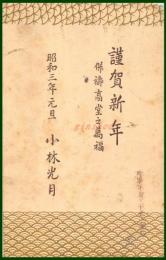 謹賀新年
併禱高堂之萬福
昭和三年元旦
小林光月